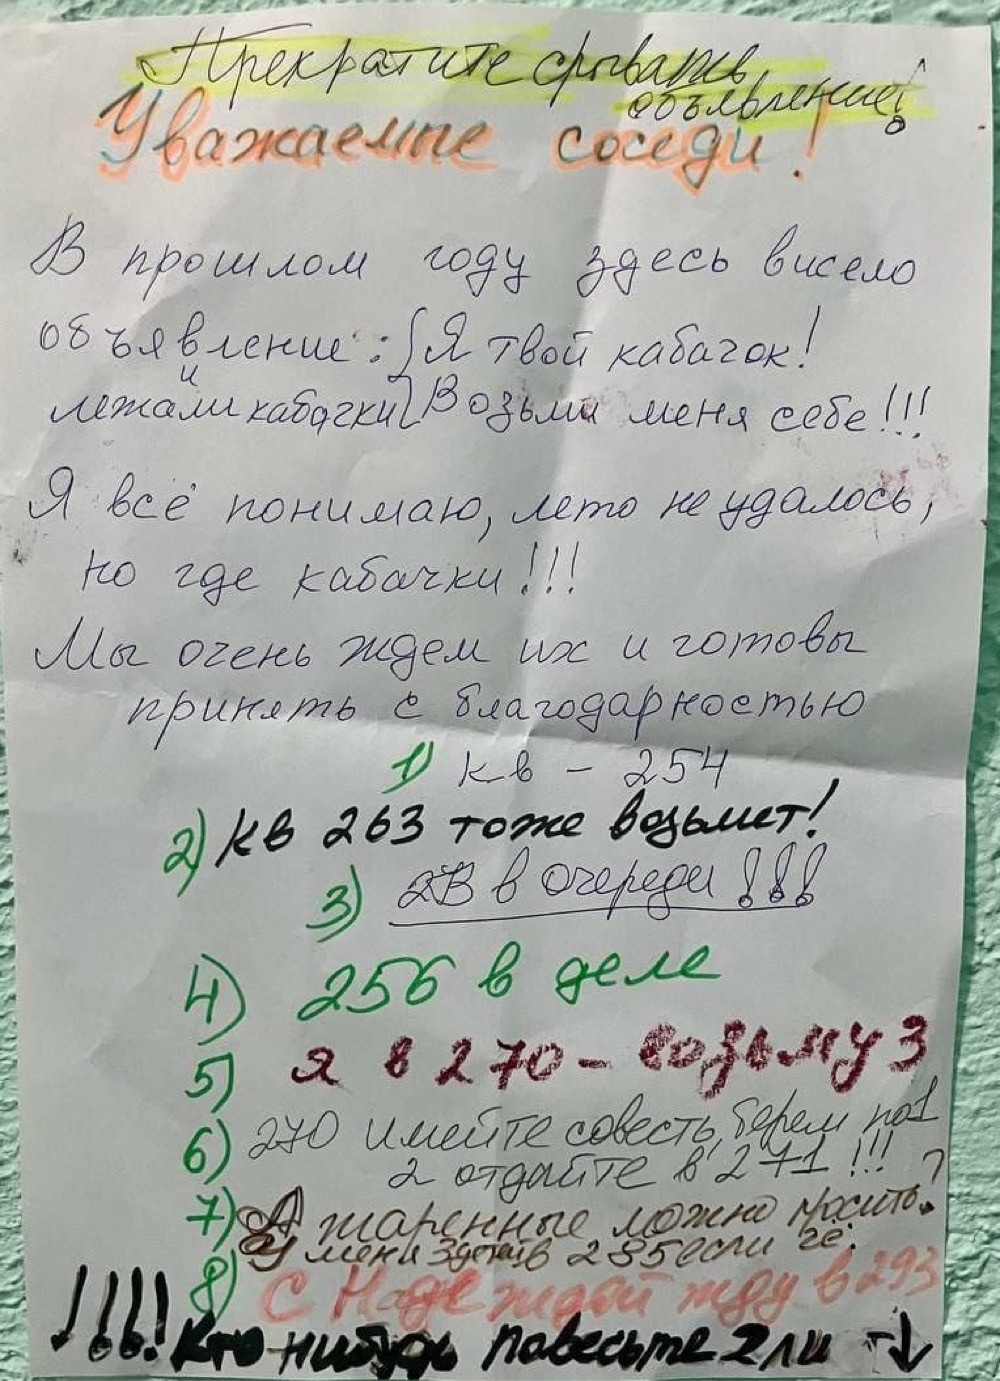 Прекратите срывать
объявление!
Уважаемые соседи!
В прошлом году здесь висело
объявление: Я твой кабачок!
и
лежали кабачки Возьми меня себе!!!
Я всё понимаю, лето не удалось,
но где кабачки!!!
Мы очень ждем их и готовы
принять с благодарностью
1) кв - 254
2) кв 263 тоже возьмет!
3) 2В в очереди!!!
4) 256 в деле
5) Я в 270 - возьму 3
6) 270 имейте совесть, берем по 1
2 отдайте в 271!!!
7) А жаренные можно просить?
У меня 285 если че.
8) С Надеждой жду в 293
!!!! Кто нибудь повесьте 2 ли →↓